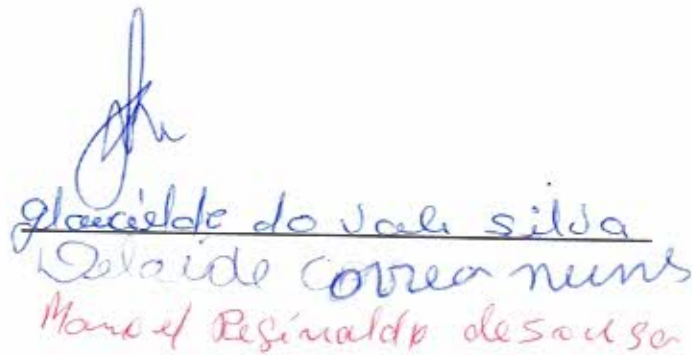 glaucielde do vale silva
Delaide Correa nunes
Manoel Reginaldo de Sousa